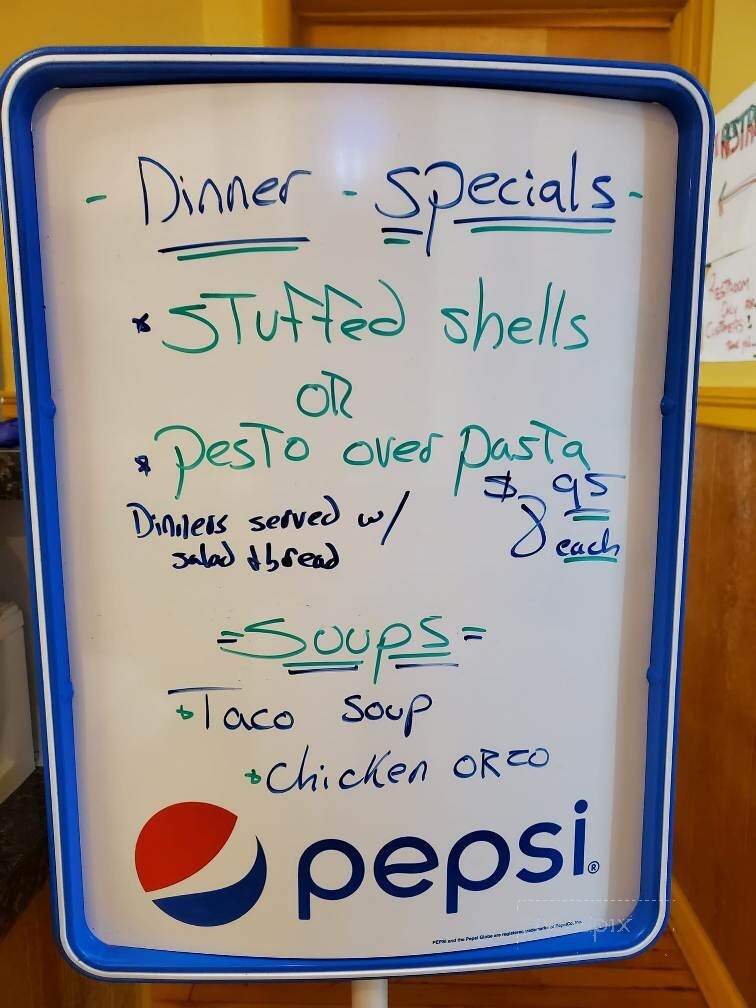 - Dinner - Specials -
* Stuffed shells
OR
* Pesto over pasta
Dinners served w/
salad + bread
$8.95
each
= Soups =
* Taco Soup
* Chicken ORZO
pepsi®
PEPSI and the Pepsi Globe are registered trademarks of PepsiCo, Inc.
RESTROOM
ONLY
CUSTOMERS